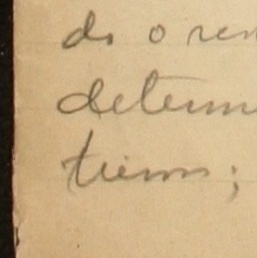 do o ren
determ
tiems;